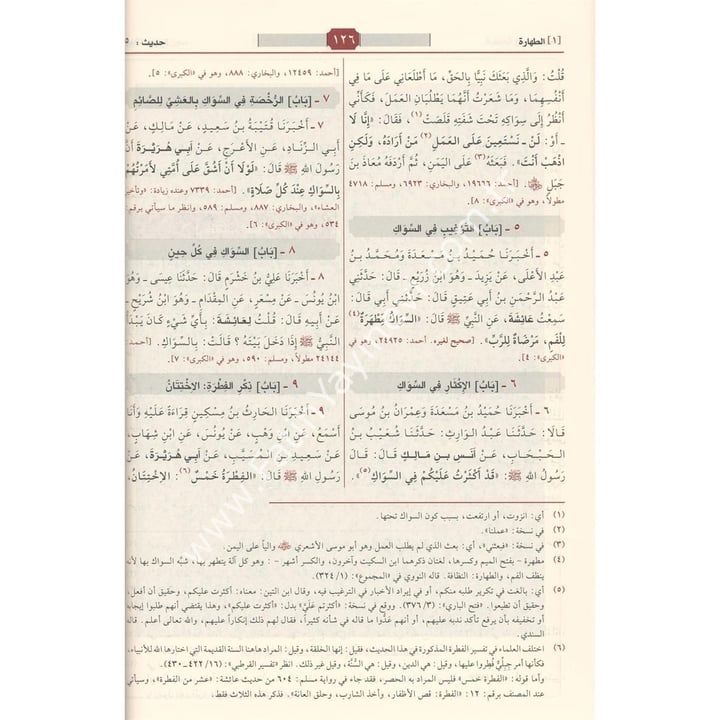 [١] الطهارة
١٢٦
حديث : ٥
قُلْتُ: وَالَّذِي بَعَثَكَ نَبِيًّا بِالحَقِّ، مَا أَطْلَعَانِي عَلَى مَا فِي
أَنْفُسِهِمَا، وَمَا شَعَرْتُ أَنَّهُمَا يَطْلُبَانِ العَمَلَ، فَكَأَنِّي
أَنْظُرُ إِلَى سِوَاكِهِ تَحْتَ شَفَتِهِ قَلَصَتْ(١)، فَقَالَ: «إِنَّا لَا
ـ أَوْ: لَنْ ـ نَسْتَعِينَ عَلَى العَمَلِ(٢) مَنْ أَرَادَهُ، وَلَكِنِ
اذْهَبْ أَنْتَ». فَبَعَثَهُ(٣) عَلَى اليَمَنِ، ثُمَّ أَرْدَفَهُ مُعَاذُ بنُ
جَبَلٍ ﷺ. [أحمد: ١٩٦٦٦، والبخاري: ٦٩٢٣، ومسلم: ٤٧١٨
مطولاً، وهو في «الكبرى»: ٨].
٥ ـ [بَابُ] التَّرْغِيبِ فِي السِّوَاكِ
٥ ـ أَخْبَرَنَا حُمَيْدُ بنُ مَسْعَدَةَ وَمُحَمَّدُ بنُ
عَبْدِ الأَعْلَى، عَنْ يَزِيدَ ـ وَهُوَ ابنُ زُرَيْعٍ ـ قَالَ: حَدَّثَنِي
عَبْدُ الرَّحْمَنِ بنُ أَبِي عَتِيقٍ قَالَ: حَدَّثَنِي أَبِي قَالَ:
سَمِعْتُ عَائِشَةَ، عَنِ النَّبِيِّ ﷺ قَالَ: «السِّوَاكُ مَطْهَرَةٌ(٤)
لِلْفَمِ، مَرْضَاةٌ لِلرَّبِّ». [صحيح لغيره. أحمد: ٢٤٩٢٥، وهو في
«الكبرى»: ٤].
٦ ـ [بَابُ] الإِكْثَارِ فِي السِّوَاكِ
٦ ـ أَخْبَرَنَا حُمَيْدُ بنُ مَسْعَدَةَ وَعِمْرَانُ بنُ مُوسَى
قَالَا: حَدَّثَنَا عَبْدُ الوَارِثِ: حَدَّثَنَا شُعَيْبُ بنُ
الحَبْحَابِ، عَنْ أَنَسِ بنِ مَالِكٍ قَالَ: قَالَ
رَسُولُ اللهِ ﷺ: «قَدْ أَكْثَرْتُ عَلَيْكُمْ فِي السِّوَاكِ(٥)».
[أحمد: ١٢٤٥٩، والبخاري: ٨٨٨، وهو في «الكبرى»: ٥].
٧ ـ [بَابُ] الرُّخْصَةِ فِي السِّوَاكِ بِالعَشِيِّ لِلصَّائِمِ
٧ ـ أَخْبَرَنَا قُتَيْبَةُ بنُ سَعِيدٍ، عَنْ مَالِكٍ، عَنْ
أَبِي الزِّنَادِ، عَنِ الأَعْرَجِ، عَنْ أَبِي هُرَيْرَةَ أَنَّ
رَسُولَ اللهِ ﷺ قَالَ: «لَوْلَا أَنْ أَشُقَّ عَلَى أُمَّتِي لَأَمَرْتُهُمْ
بِالسِّوَاكِ عِنْدَ كُلِّ صَلَاةٍ». [أحمد: ٧٣٣٩ وعنده زيادة: «وتأخير
العشاء»، والبخاري: ٨٨٧، ومسلم: ٥٨٩، وانظر ما سيأتي برقم
٥٣٤، وهو في «الكبرى»: ٦].
٨ ـ [بَابُ] السِّوَاكِ فِي كُلِّ حِينٍ
٨ ـ أَخْبَرَنَا عَلِيُّ بنُ خَشْرَمٍ قَالَ: حَدَّثَنَا عِيسَى ـ وَهُوَ
ابْنُ يُونُسَ ـ عَنْ مِسْعَرٍ، عَنِ المِقْدَامِ ـ وَهُوَ ابْنُ شُرَيْحٍ ـ
عَنْ أَبِيهِ قَالَ: قُلْتُ لِعَائِشَةَ: بِأَيِّ شَيْءٍ كَانَ يَبْدَأُ
النَّبِيُّ ﷺ إِذَا دَخَلَ بَيْتَهُ؟ قَالَتْ: بِالسِّوَاكِ. [أحمد:
٢٤١٤٤ مطولاً، ومسلم: ٥٩٠، وهو في «الكبرى»: ٧].
٩ ـ [بَابُ] ذِكْرِ الفِطْرَةِ: الِاخْتِتَانُ
٩ ـ أَخْبَرَنَا الحَارِثُ بنُ مِسْكِينٍ قِرَاءَةً عَلَيْهِ وَأَنَا
أَسْمَعُ، عَنِ ابْنِ وَهْبٍ، عَنْ يُونُسَ، عَنِ ابْنِ شِهَابٍ،
عَنْ سَعِيدِ بنِ المُسَيَّبِ، عَنْ أَبِي هُرَيْرَةَ، عَنْ
رَسُولِ اللهِ ﷺ قَالَ: «الفِطْرَةُ خَمْسٌ(٦): الِاخْتِتَانُ،
(١) أي: انزوت، أو ارتفعت، بسبب كون السواك تحتها.
(٢) في نسخة: «عملنا».
(٣) في نسخة: «فبعثني»، أي: بعث الذي لم يطلب العمل وهو أبو موسى الأشعري والياً على اليمن.
(٤) مطهرة - بفتح الميم وكسرها، لغتان ذكرهما ابن السكيت وآخرون، والكسر أشهر - : وهو كل آلة يتطهر بها، شبَّه السواك بها لأنه
ينظف الفم، والطهارة: النظافة. قاله النووي في «المجموع»: (١/ ٣٢٤).
(٥) أي: بالغت في تكرير طلبه منكم، أو في إيراد الأخبار في الترغيب فيه، وقال ابن التين: معناه: أكثرت عليكم، وحقيق أن أفعل،
وحقيق أن تطيعوا. «فتح الباري»: (٣٧٦/٣). ووقع في نسخة: «أكثرتم عَلَيَّ» بدل: «أكثرت عليكم»، وهذا يقتضي أنهم طلبوا إيجابه
أو تخفيفه بأن يرفع تأكد ندبه عليهم، أو أنهم عَدُّوا ما قاله في شأنه كثيراً، فقال لهم ذلك إنكاراً عليهم، والله تعالى أعلم. قاله
السندي.
(٦) اختلف العلماء في تفسير الفطرة المذكورة في هذا الحديث، فقيل: إنها الخلقة، وقيل: المراد هاهنا السنة القديمة التي اختارها الله للأنبياء،
فكأنها أمر جِبِلِّيٌّ فُطِروا عليها، وقيل: هي الدين، وقيل: هي السُّنَّة، وقيل غير ذلك. انظر «تفسير القرطبي»: (١٦/ ٤٢٢-٤٣٠).
وأما قوله: «الفطرة خمس» فليس المراد به الحصر، فقد جاء في رواية مسلم: ٦٠٤ من حديث عائشة: «عشر من الفطرة»، وسيأتي
عند المصنف برقم: ١٢: «الفطرة: قص الأظفار، وأخذ الشارب، وحلق العانة»، فذكر هذه الثلاث فقط.